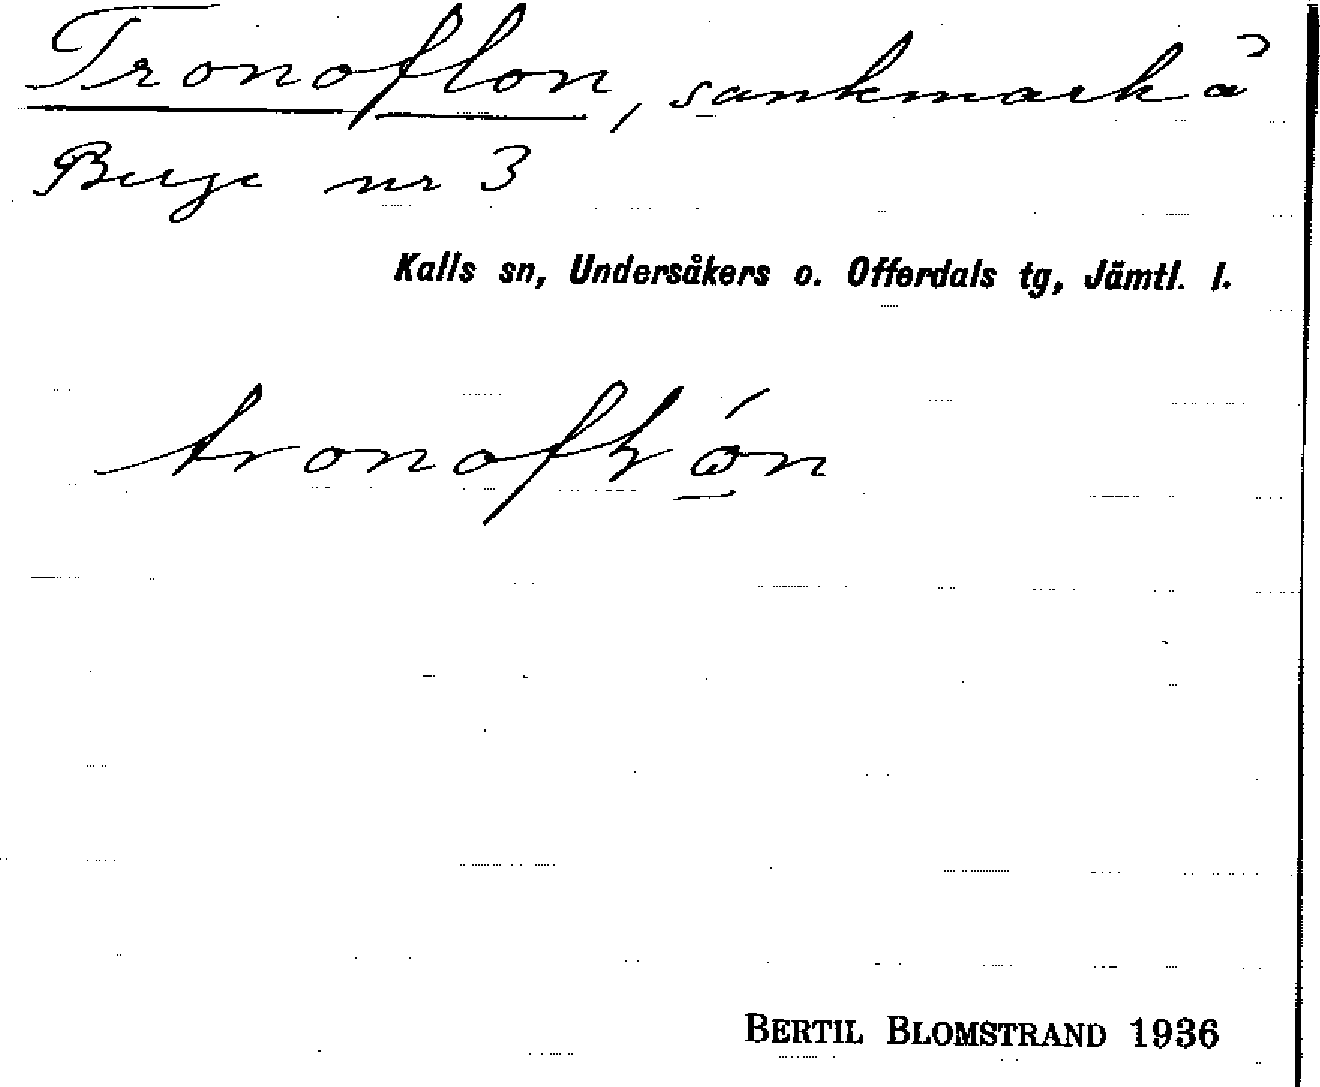 Tronoflon, sankmark å
Berge nr 3
Kalls sn, Undersåkers o. Offerdals tg, Jämtl. l.
BERTIL BLOMSTRAND 1936